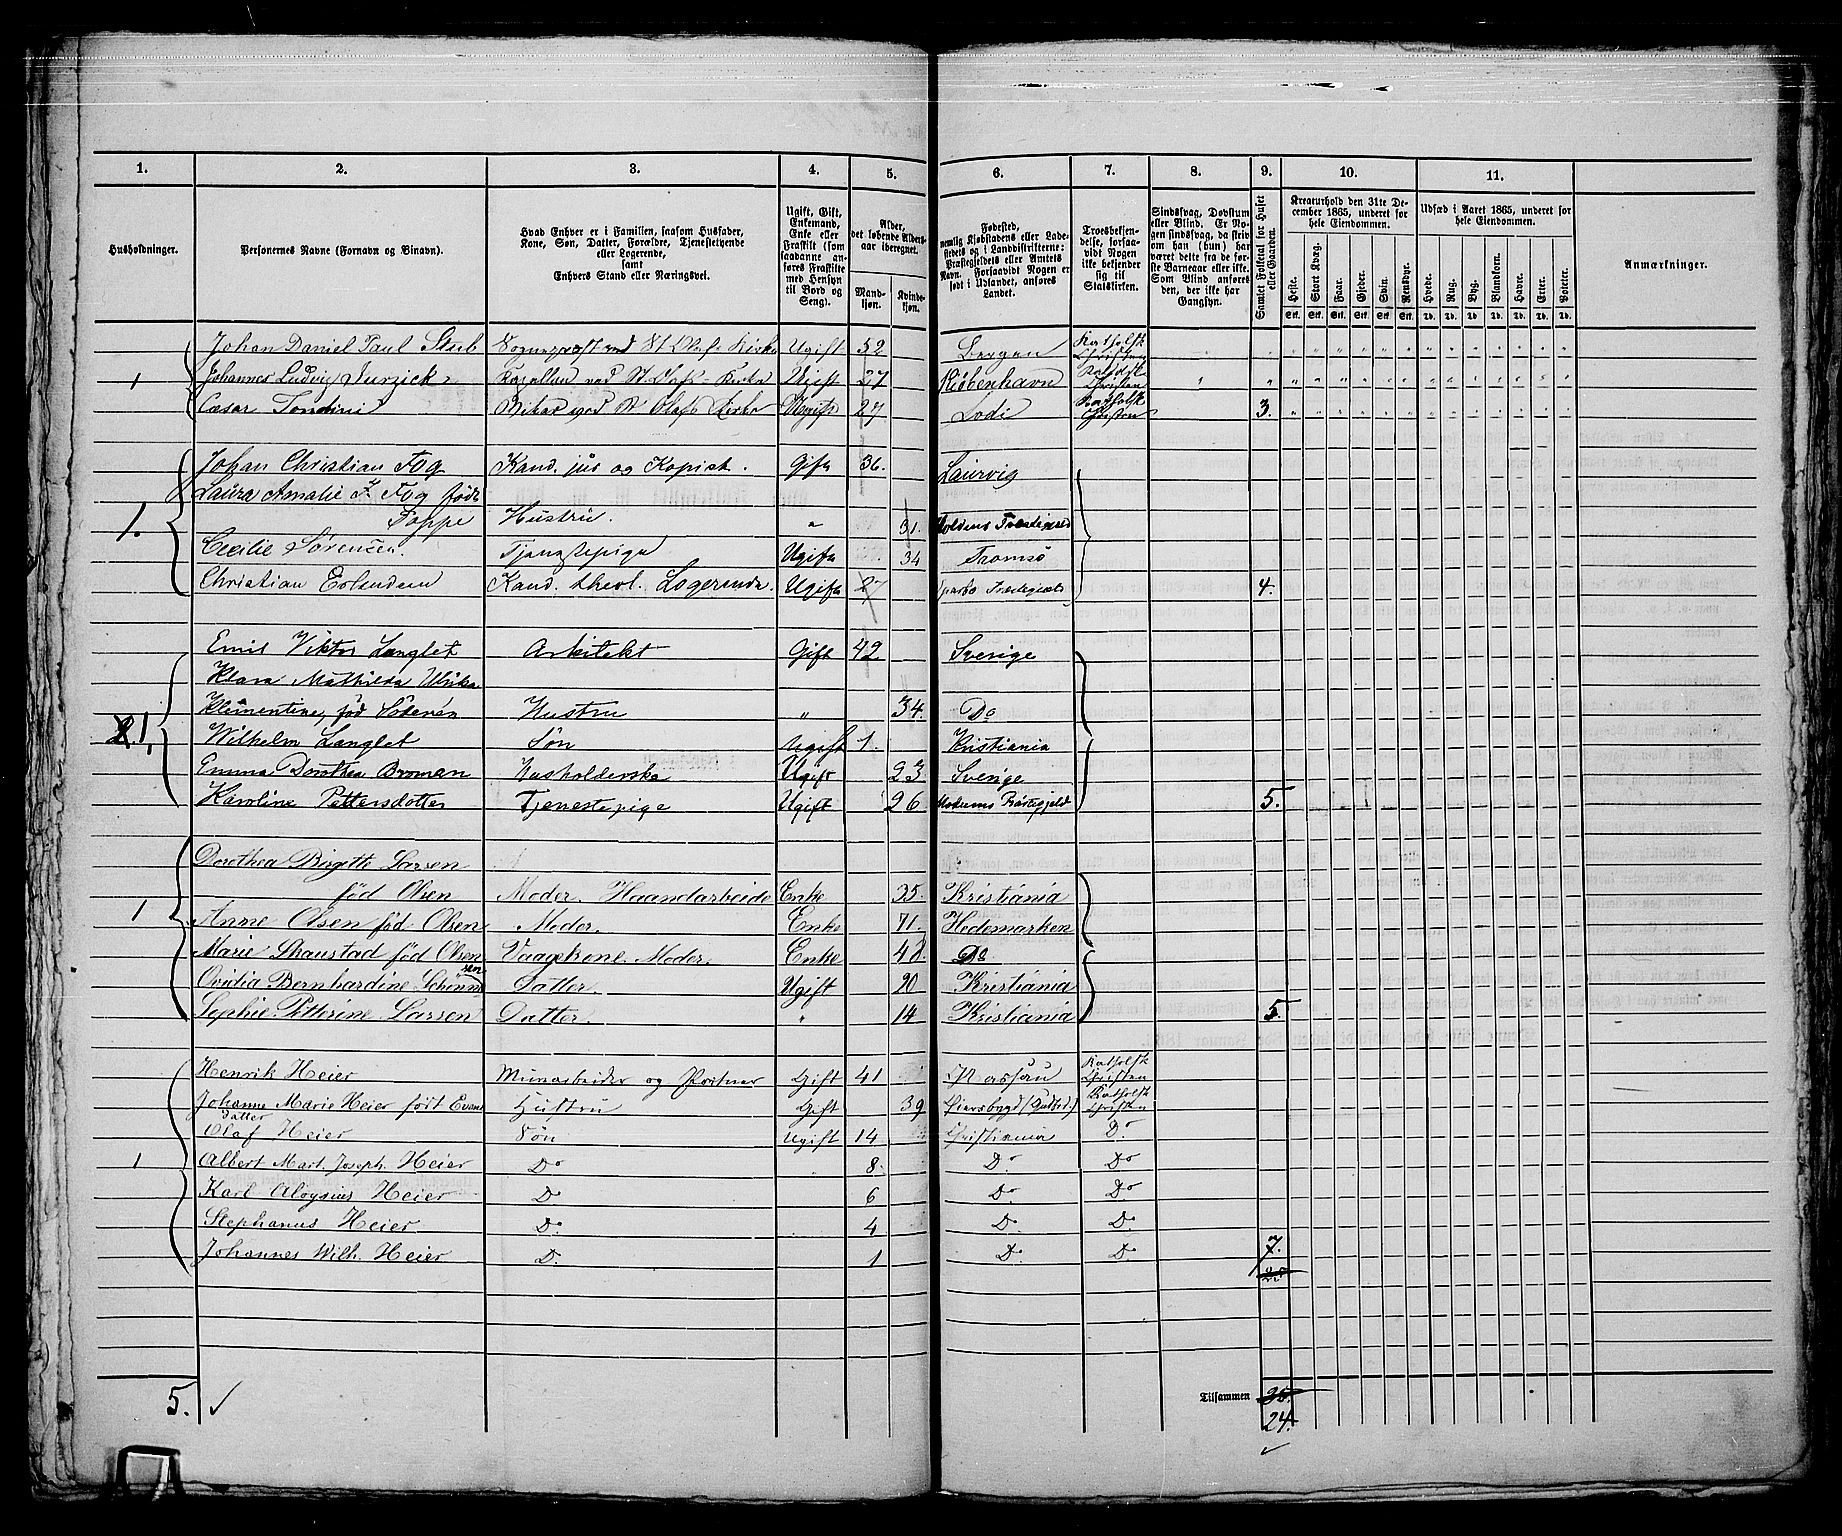 1. 2. 3. 4. 5. 6. 7. 8. 9. 10. 11.
Husholdninger.
Personernes Navne (Fornavn og Binavn).
Hvad Enhver er i Familien, saasom Husfader,
Kone, Søn, Datter, Forældre, Tjenestetyende
eller Logerende,
samt
Enhvers Stand eller Næringsvei.
Ugift, Gift,
Enkemand,
Enke eller
Fraskilt (som
saadanne an-
føres Fraskilte
med Hensyn
til Bord og
Seng).
Alder,
det løbende Alders-
aar iberegnet.
Mand-
kjøn.
Kvinde-
kjøn.
Fødested,
nemlig Kjøbstadens eller Lade-
stedets og i Landdistrikterne:
Præstegjeldets eller Amtets
Navn. Forsaavidt Nogen er
født i Udlandet, anføres
Landet.
Troesbekjen-
delse, forsaa-
vidt Nogen
ikke bekjender
sig til
Statskirken.
Sindssvag, Døvstum
eller Blind. Er No-
gen sindssvag, da skriv
om han (hun) har
været dette fra de før-
ste Barneaar eller ikke.
Som Blind anføres
den, der ikke har
Gangsyn.
Samlet Folketal for Huset
eller Gaarden.
Kreaturhold den 31te De-
cember 1865, underet for
hele Eiendommen.
Heste. Stort Kvæg. Faar. Gjeder. Svin. Rensdyr.
Stk. Stk. Stk. Stk. Stk. Stk.
Udsæd i Aaret 1865, underet for
hele Eiendommen.
Hvede. Rug. Byg. Blandkorn. Havre. Erter. Poteter.
Td. Td. Td. Td. Td. Td. Td.
Anmærkninger.
Johan Daniel Paul Stub Sogneprest ved St Olafs Kirke Ugift 52 Bergen Katholsk Christen
1 Johannes Ludvig Kapellan ved St Olafs Kirke Ugift 27 Kjøbenhavn Katholsk Christen
Cæsar Tondini Vikar ved St Olafs Kirke Ugift 27 Lodi Katholsk Christen 3.
Johan Christian Fog Kand. jur og Kopist. Gift 36. Laurvig
Laura Amalie F. Fog født
1. Poppe Hustru. " 31. Holdens Præstegjeld
Cecilie Sørensen. Tjenestepige Ugift 34 Tromsø
Christian Erlendsen Kand. theol. Logerende. Ugift 27 Sparbo Præstegjeld 4.
Emil Viktor Langlet Arkitekt Gift 42 Sverige
Klara Mathilda Ulrika
1. Klementine, fød Söderén Hustru " 34. Do
Wilhelm Langlet Søn Ugift 1. Kristiania
Emma Dorothea Broman Husholderske Ugift 23 Sverige
Karoline Pettersdatter Tjenestepige Ugift 26 Modums Præstegjeld 5.
Dorothea Birgitte Larsen
fød Olsen Moder. Haandarbeide Enke 35. Kristiania
1 Anne Olsen fød Olsen Moder. Enke 71. Hedemarken
Marie Skaustad fød Olsen Vaagekone. Moder. Enke 48. Do
Ovidia Bernhardine Datter. Ugift 20 Kristiania
Sophie Petterine Larsen Datter. " 14 Kristiania 5.
Henrik Heier Murarbeider og Portner Gift 41 Nassau Katholsk Christen
Johanne Marie Heier født Evens
datter Hustru Gift 39 Katholsk Christen
Olaf Heier Søn Ugift 14 Christiania Do
1 Albert Mart. Joseph. Heier Do 8. Do Do
Karl Aloysius Heier Do 6 Do Do
Stephanus Heier Do 4 Do Do
Johannes Wilh. Heier Do 1 Do Do 7.
25
5. ✓ Tilsammen 25.
24.
✓